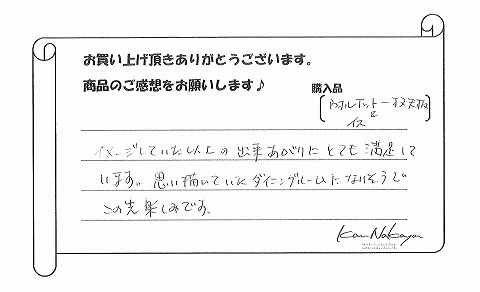 お買い上げ頂きありがとうございます。
商品のご感想をお願いします♪
購入品
ウォルナット一枚天板
と
イス
イメージしていた以上の出来あがりにとても満足して
います。思い描いていたダイニングルームになりそうで
この先楽しみです。